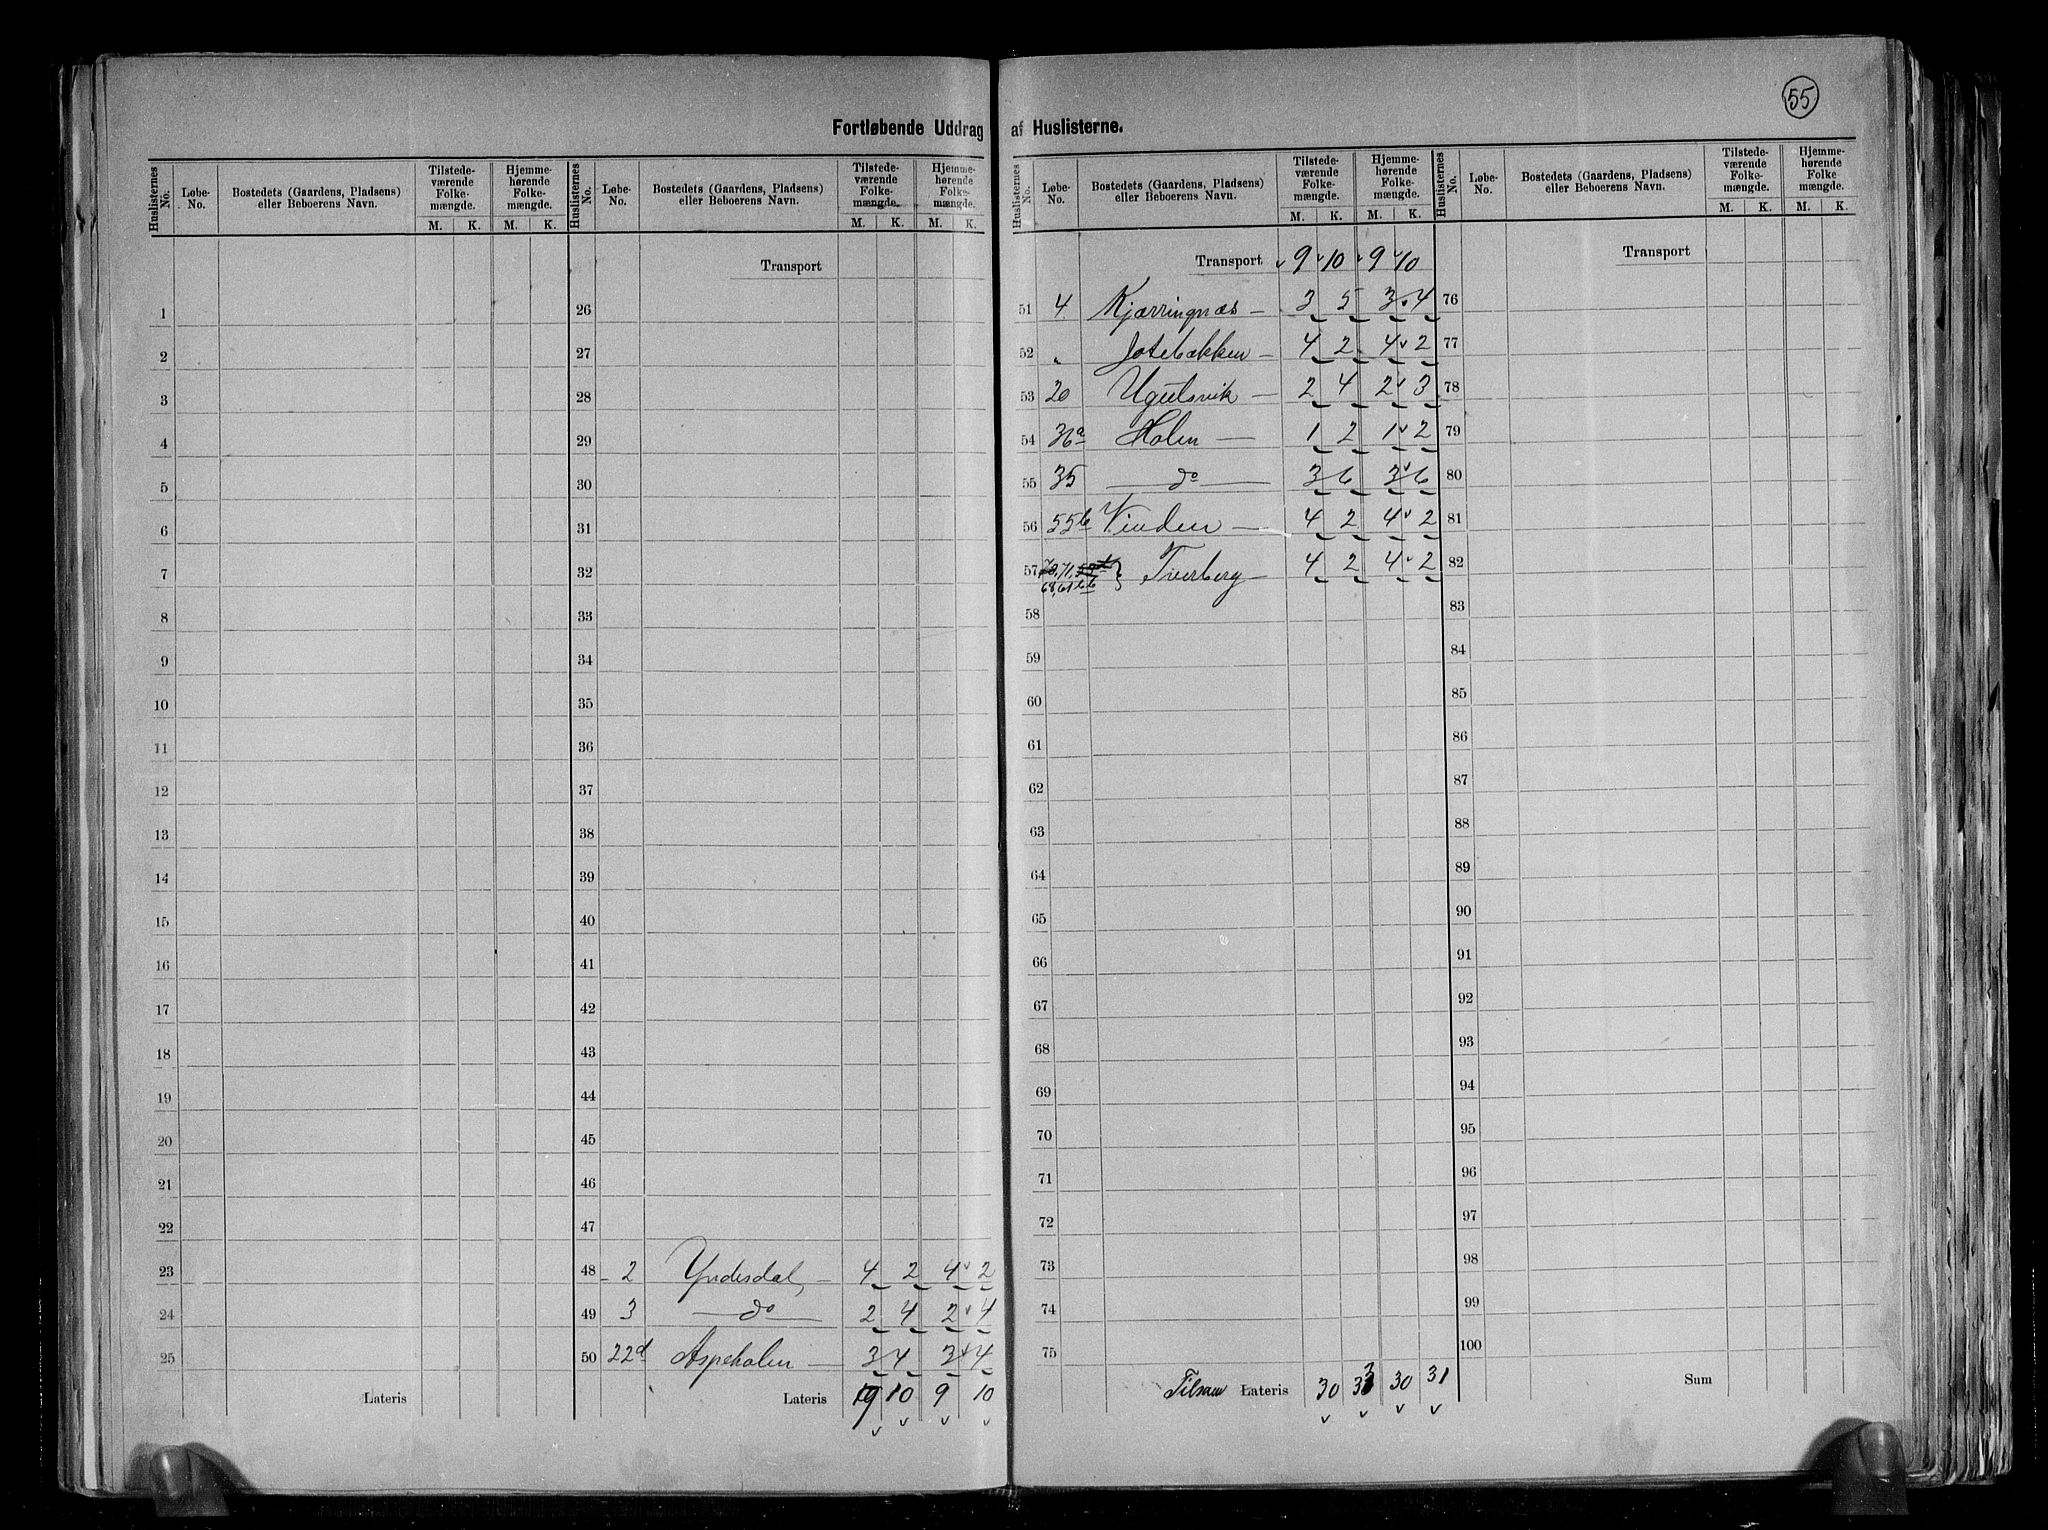 55
Fortløbende Uddrag af Huslisterne.
Huslisternes No. Løbe-No. Bostedets (Gaarden, Pladsens) eller Beboerens Navn. Tilstede-værende Folke-mængde. M. K. Hjemme-hørende Folke-mængde. M. K.
1
2
3
4
5
6
7
8
9
10
11
12
13
14
15
16
17
18
19
20
21
22
23
24
25
Lateris
Huslisternes No. Løbe-No. Bostedets (Gaardens, Pladsens) eller Beboerens Navn. Tilstede-værende Folke-mængde. M. K. Hjemme-hørende Folke-mængde. M. K.
Transport
26
27
28
29
30
31
32
33
34
35
36
37
38
39
40
41
42
43
44
45
46
47
48 2 Yndesdal, 4 2 4 2
49 3 do 2 4 2 4
50 22d Aspeholen 3 4 3 4
Lateris 9 10 9 10
Huslisternes No. Løbe-No. Bostedets (Gaardens, Pladsens) eller Beboerens Navn. Tilstede-værende Folke-mængde. M. K. Hjemme-hørende Folke-mængde. M. K.
Transport 9 10 9 10
51 4 Kjærringnæs 3 5 3 4
52 " Jotebakken 4 2 4 2
53 20 Ugulsvik 2 4 2 3
54 36a Holen 1 2 1 2
55 35 do 3 6 3 6
56 55b Vinden 4 2 4 2
57 71, Tverberg 4 2 4 2
58
59
60
61
62
63
64
65
66
67
68
69
70
71
72
73
74
75
Tilsam Lateris 30 33 30 31
Huslisternes No. Løbe-No. Bostedets (Gaardens, Pladsens) eller Beboerens Navn. Tilstede-værende Folke-mængde. M. K. Hjemme-hørende Folke-mængde. M. K.
Transport
76
77
78
79
80
81
82
83
84
85
86
87
88
89
90
91
92
93
94
95
96
97
98
99
100
Sum